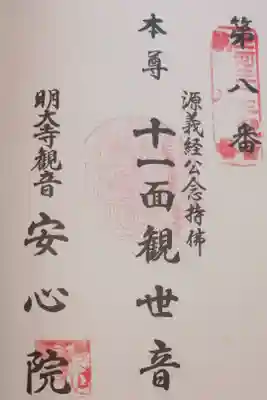 第八番
源義経公念持佛
本尊
十一面観世音
明大寺観音
安心院